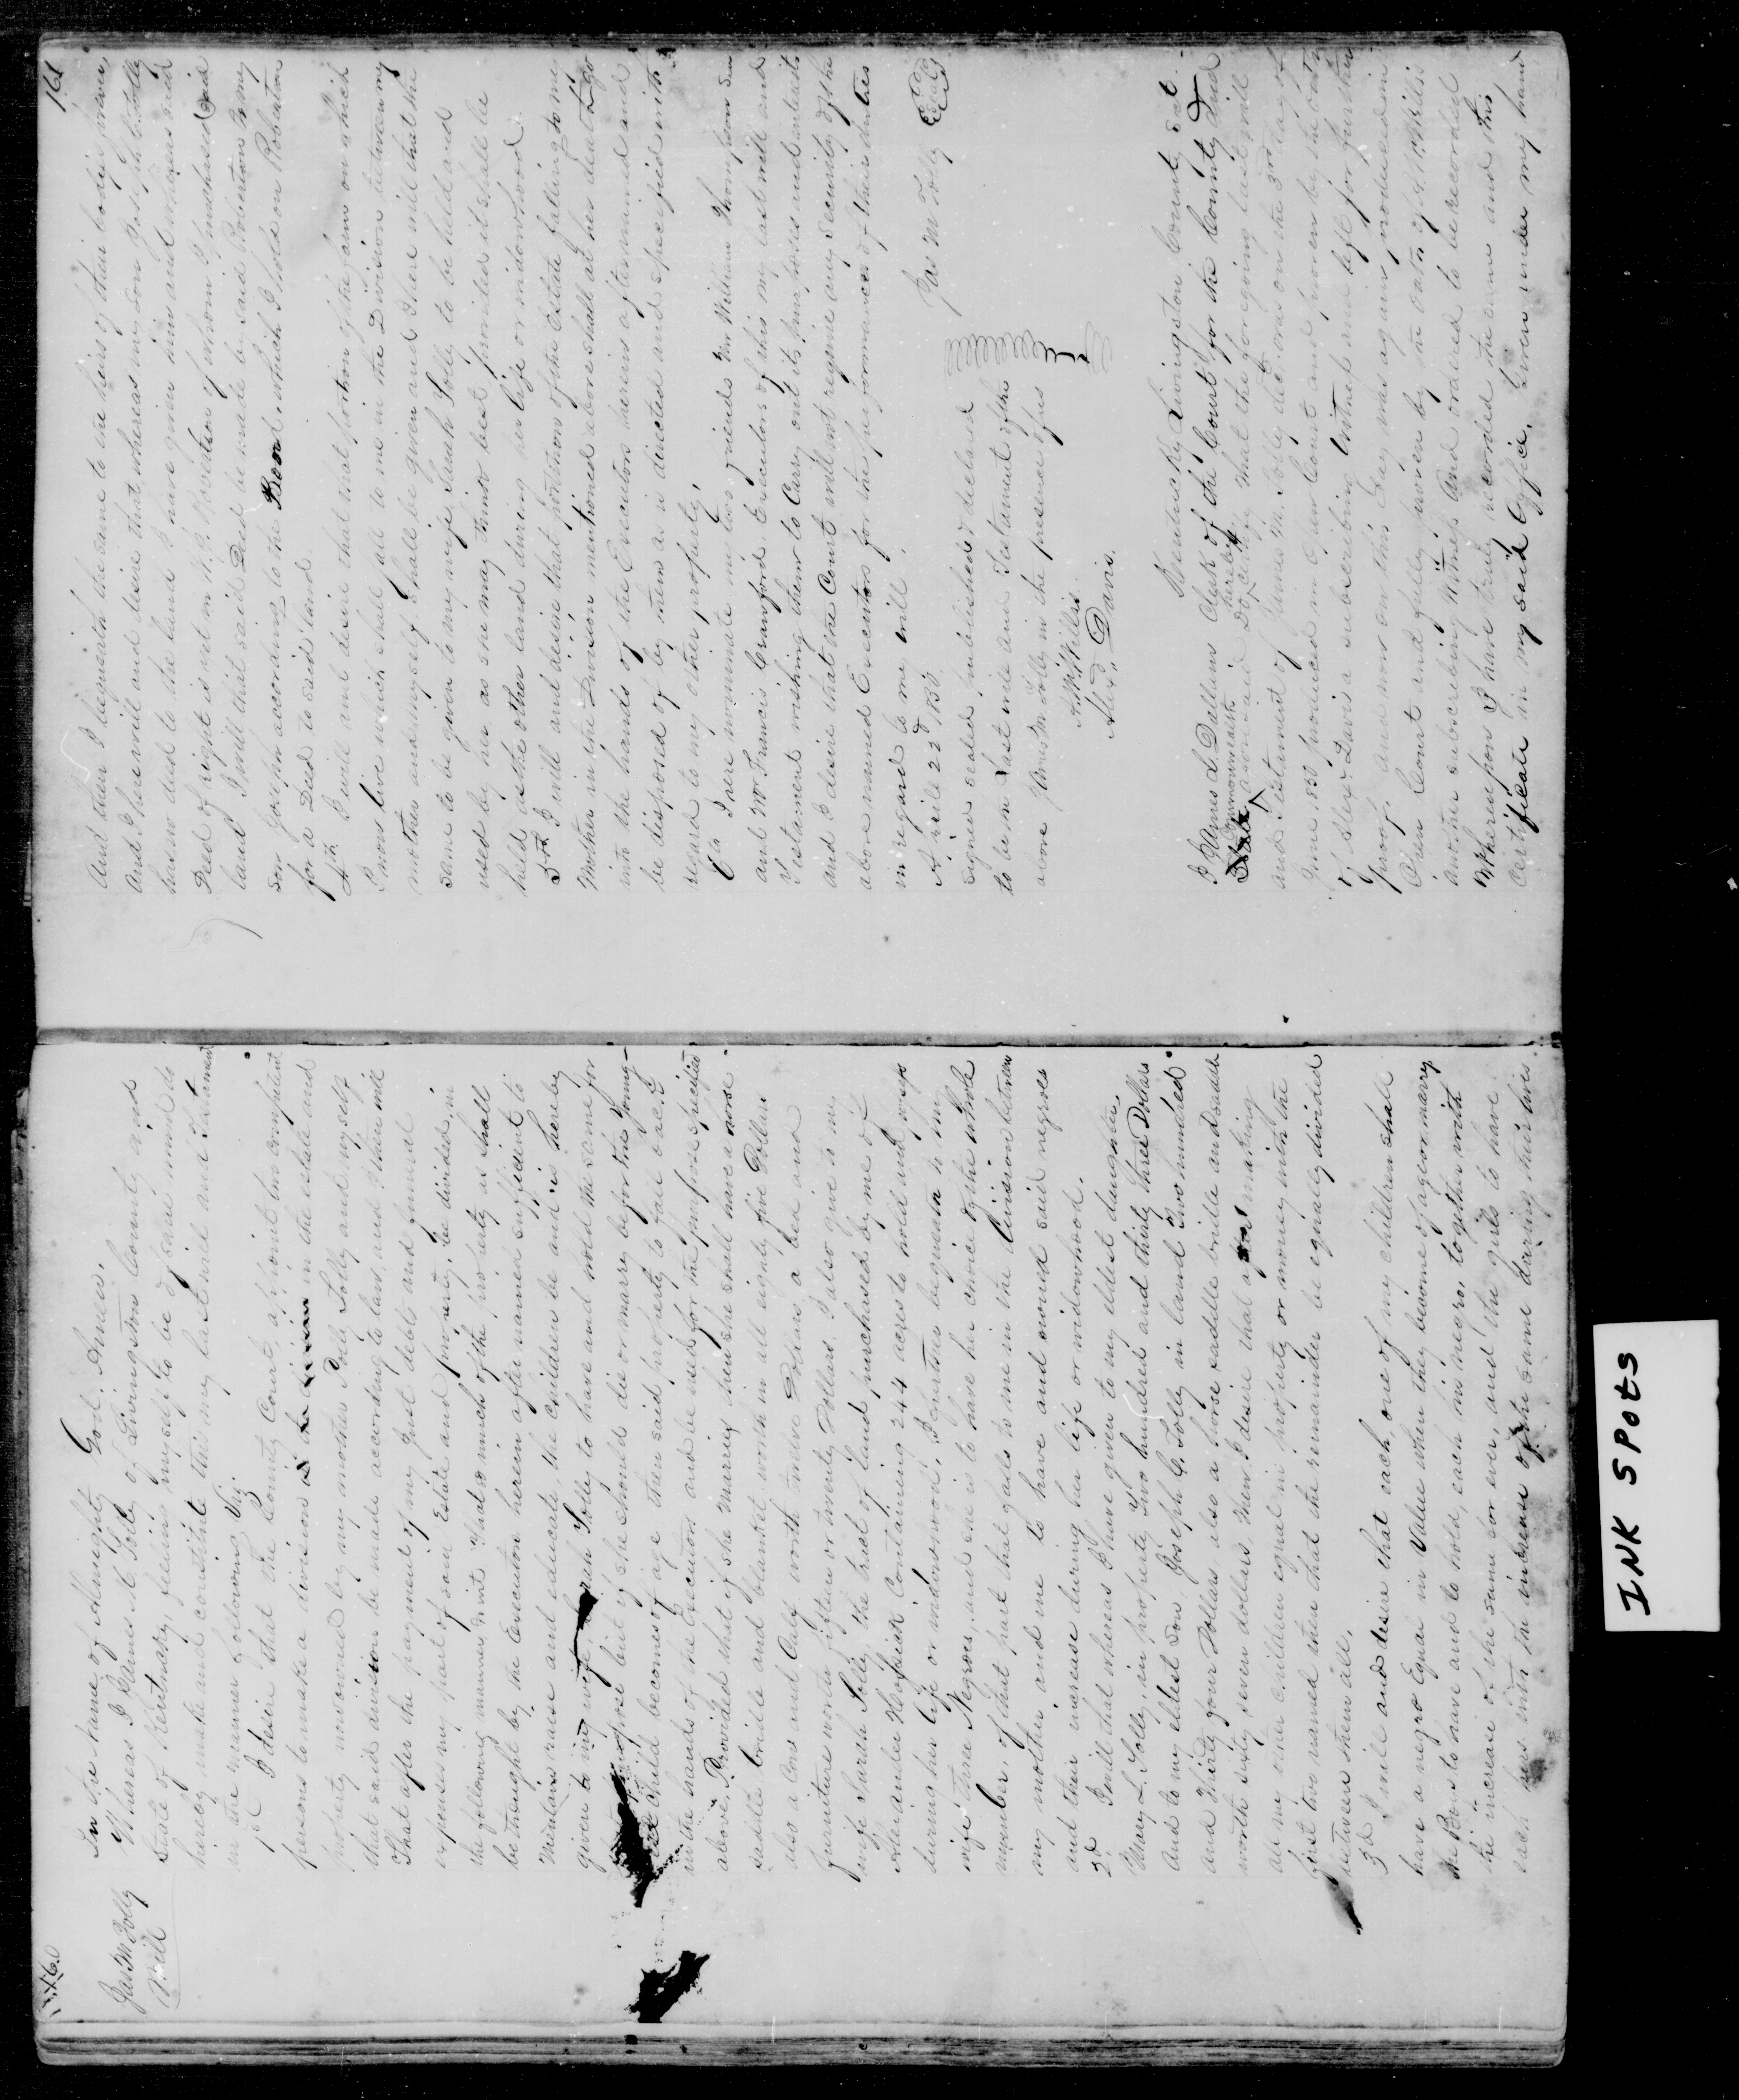 160
Jas M Jolly
Will
In the name of Almighty God. Amen.
Whereas I James M. Jolly of Livingston County and
State of Kentucky, feeling myself to be of sane mind do
hereby make and constitute this my last will and Testament
in the manner following Viz
1st I desire that the County Court appoint two competent
persons to make a division in the estate and
property now owned by my mother Jolly and myself
that said division be made according to law, and I then will
That after the payment of my Just debts and funeral
expenses my part of said Estate and property, be divided, in
the following manner, viz That so much of the property as shall
be thought by the Executors herein after named sufficient to
maintain raise and educate the children be and is hereby
given to my wife Sarah Jolly to have and hold the same for
purpose but if she should die or marry before the Young-
est Child becomes of age then said property to fall back
in the hands of the Executors and be used for the purpose specified
above, Provided that if she Marries then she shall have a horse
saddle bridle and blanket worth in all eighty five Dollars
also a Cow and Calf worth twelve Dollars a bed and
furniture worth fifteen or twenty Dollars. I also give to my
wife Sarah Jolly, the tract of land purchased by me of
Alexander Containing 244 acres to hold and
during her life or widowhood, I further bequeath to my
wife three Negroes, and she is to have her choice of the whole
number, of that part that falls to me in the division between
my mother and me to have and owned said negroes
and their increase during her life or widowhood.
2d I will that whereas I have given to my eldest daughter,
Mary L. Jolly, in property Two hundred and thirty three Dollars
And to my eldest Son Joseph C. Jolly in land Two hundred
and Thirty four Dollars also a horse saddle bridle and
worth sixty seven dollars Now I desire that after making
all my other children equal in property or money with the
first two named then that the remainder be equally divided
between them all.
3d I will and desire that each one of my children shall
have a negro Equal in Value when they become of age or marry
the Boys to have and to hold, each his negro, together with
the increase of the same for ever, and the girls to have
each hers with the increase of the same during their lives
161
And then I bequeath the same to the heirs of their body forever,
And I here will and desire that whereas my son Joseph C. Jolly
has no deed to the land I have given him and whereas said
Deed of right is not in W. P. Robertson of whom I purchased said
land I will that said Deed be made by said Robertson to my
son Joseph according to the Bond, which I hold on Robertson
for a Deed to said land.
4th I will and desire that that portion of the farm on which
I now live which shall fall to me in the Division between my
mother and myself shall be given and I here will that the
same to be given to my wife Sarah Jolly, to be held and
used by her as she may think best provided it shall be
held as the other land during her life or widowhood.
5th I will and desire that portion of the Estate falling to my
Mother in the Division mentioned above shall at her death go
into the hands of the Executors herein afternamed and
be disposed of by them as is directed and specified with
regard to my other property,
6th I here nominate my two friends Mr William Thompson Sen
and Mr Francis Crawford, Executors of this my last will and
Testament wishing them to Cary out its purposes and intents
and I desire that the Court will not require any security of the
above named Executors for the performances of their duties
in regard to my will.
Aprile 22d 1850 Jas M Jolly
Signed sealed published & declared
to be my last will and Testament of the
above James M Jolly in the presence of us
A. W. Willis.
Alex. Davis.
Kentucky Livingston County Sct.
I James L. Dallam Clerk of the Court for the County and
State Commonwealth aforesaid Do hereby certify that the foregoing last will
and Testament of James M. Jolly decd. was on the 3rd day of
June 1850 produced in Open Court and proven by the oath
of Alex. Davis a subscribing witness and left for further
proof. And now on this day was again produced in
Open Court and fully proven by the oath of A. W. Willis
another subscribing Witness And ordered to be recorded
Whereupon I have truly recorded the same and this
Certificate in my said Office. Given under my hand
INK SPOTS